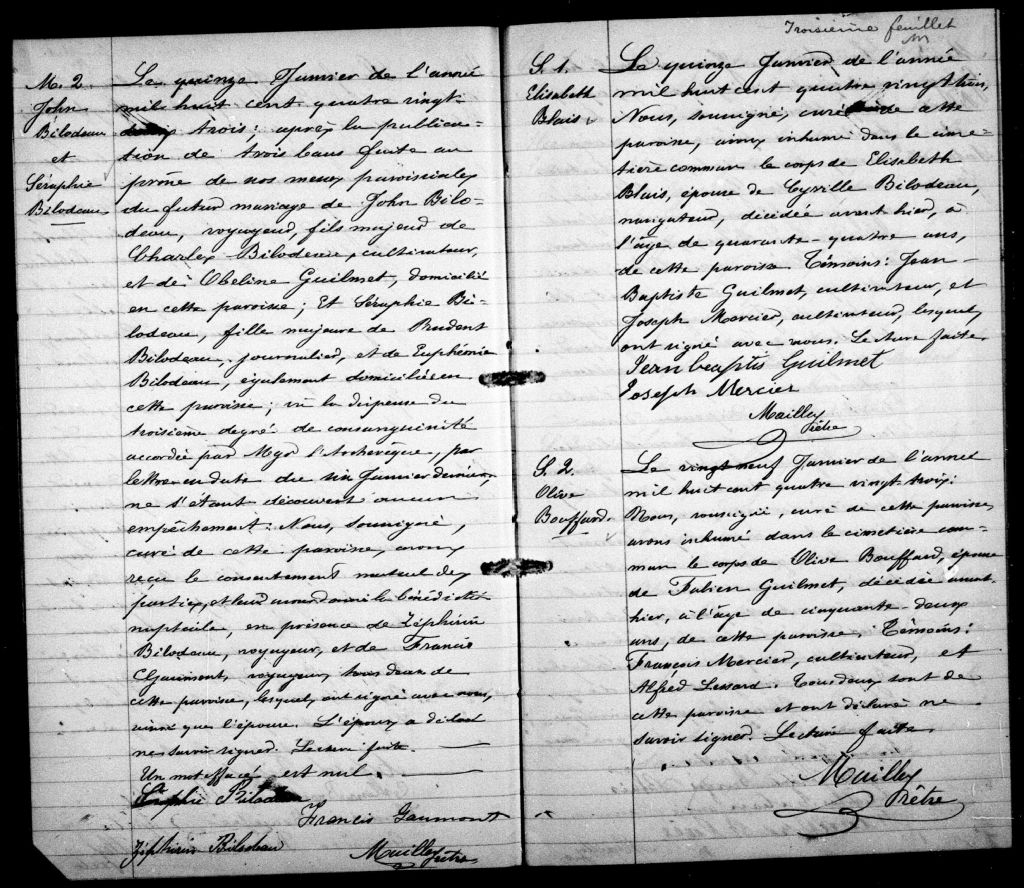 M. 2.
John
Bilodeau
et
Séraphie
Bilodeau
Le quinze Janvier de l'année
mil huit cent quatre vingt-
trois: après la publica-
tion de trois bans faite au
prône de nos messes paroissiales
du futur mariage de John Bilo-
deau, voyageur, fils majeur de
Charles Bilodeau, cultivateur,
et de Obeline Guilmet, domicilié
en cette paroisse; Et Séraphie Bi-
lodeau, fille majeure de Prudent
Bilodeau, journalier, et de Euphémie
Bilodeau, également domiciliés en
cette paroisse; vu la dispense du
troisième degré de consanguinité
accordée par Mgr l'Archevêque, par
lettre en date du six Janvier dernier,
ne s'étant découvert aucun
empêchement: Nous, soussigné,
curé de cette paroisse, avons
reçu le consentement mutuel des
parties, et leur avons donné la bénédiction
nuptiale, en présence de Zéphirin
Bilodeau, voyageur, et de Francis
Gaumont, voyageur, tous deux de
cette paroisse, lesquels ont signé avec nous,
ainsi que l'épouse. L'époux a déclaré
ne savoir signer. Lecture faite.
Un mot effacé est nul.
Séraphie Bilodeau
Francis Gaumont
Zéphirin Bilodeau
Mailley Ptre
Troisième feuillet
S. 1.
Elisabeth
Blais
Le quinze Janvier de l'année
mil huit cent quatre vingt trois,
Nous, soussigné, curé de cette
paroisse, avons inhumé dans le cime-
tière commun le corps de Elisabeth
Blais, épouse de Cyrille Bilodeau,
navigateur, décédée avant hier, à
l'âge de quarante-quatre ans,
de cette paroisse. Témoins: Jean-
Baptiste Guilmet, cultivateur, et
Joseph Mercier, cultivateur, lesquels
ont signé avec nous. Lecture faite.
Jean beaptis Guilmet
Joseph Mercier
Mailley
Prêtre
S. 2.
Olive
Bouffard.
Le vingt neuf Janvier de l'année
mil huit cent quatre vingt-trois:
Nous, soussigné, curé de cette paroisse,
avons inhumé dans le cimetière com-
mun le corps de Olive Bouffard, épouse
de Fabien Guilmet, décédée avant-
hier, à l'âge de cinquante-deux
ans, de cette paroisse. Témoins:
François Mercier, cultivateur, et
Alfred Lessard. Tous deux sont de
cette paroisse et ont déclaré ne
savoir signer. Lecture faite.
Mailley
Prêtre